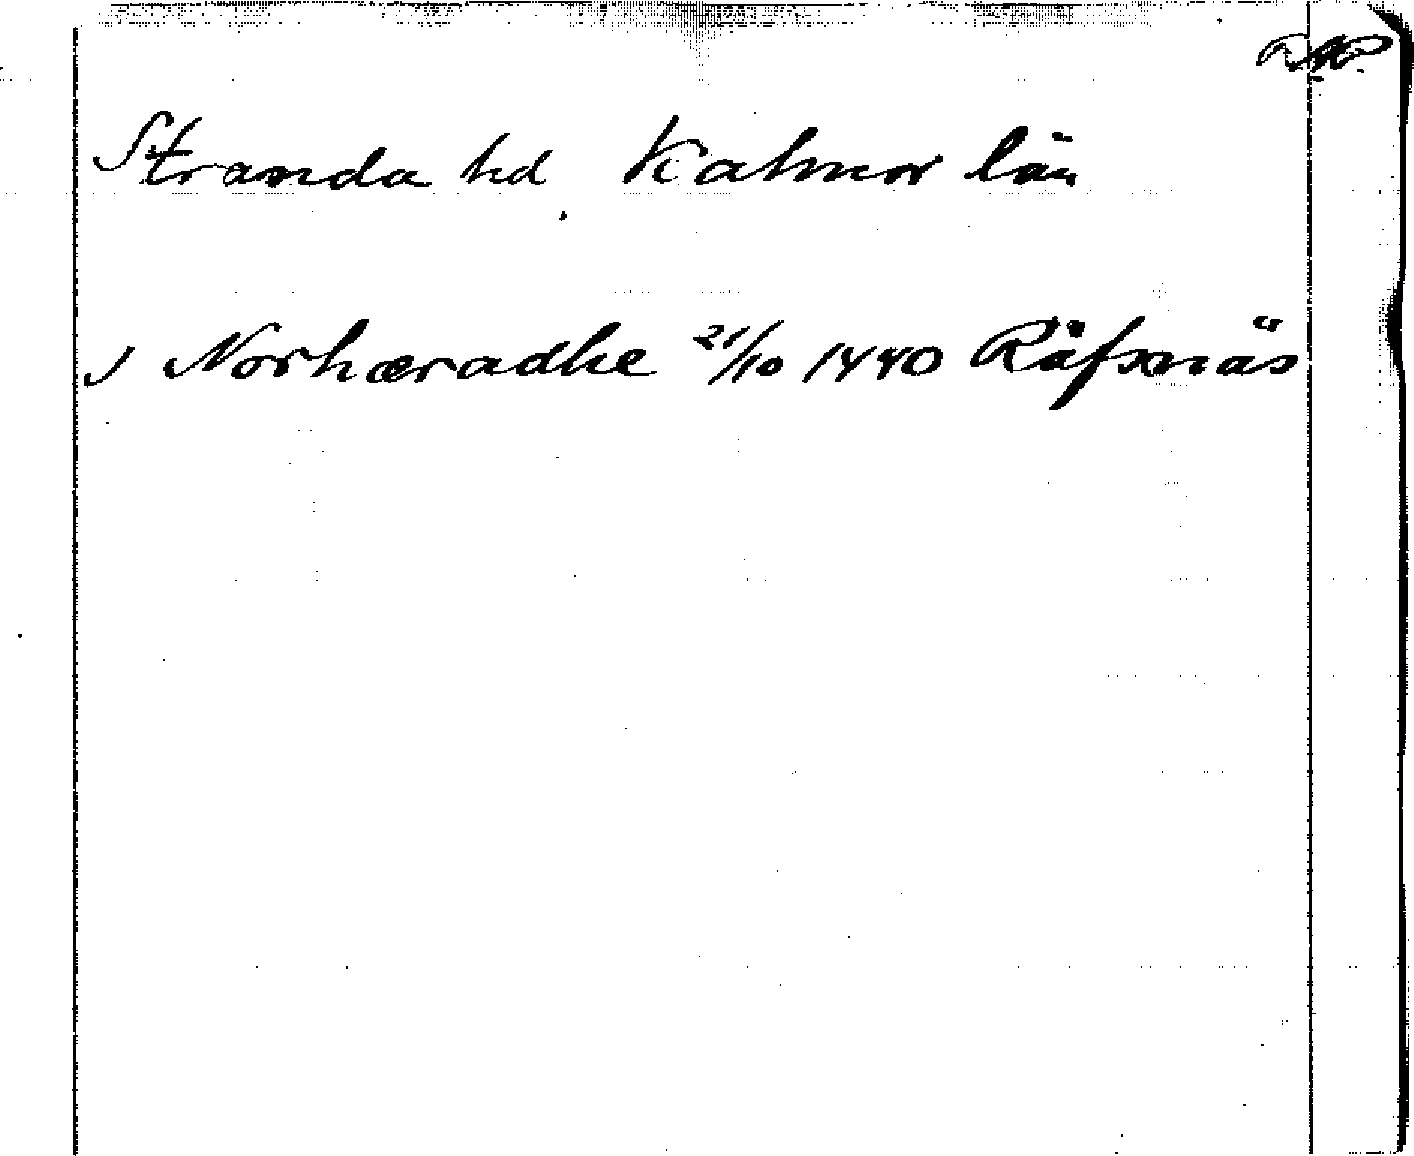 Stranda hd Kalmar län
J Norhæradhe 21/10 1440 Räfsnäs